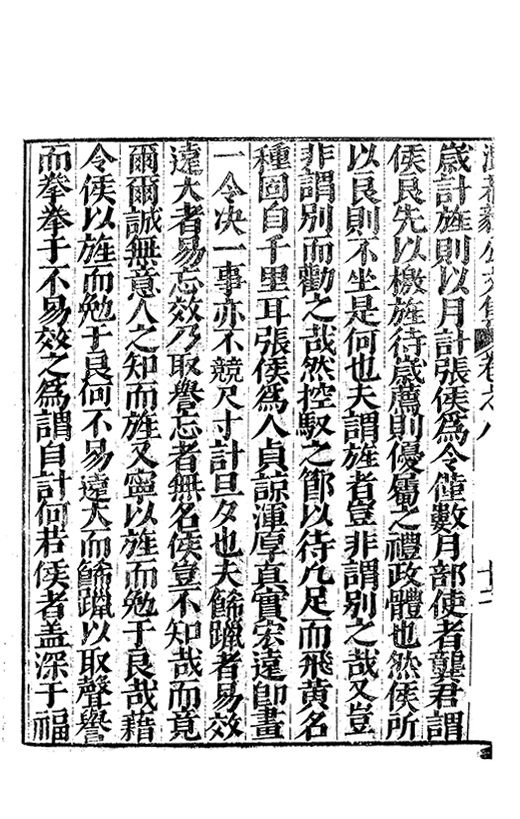 溫恭毅公文集 卷之八 十二
歲計旌則以月計張侯爲令僅數月部使者龔君謂
侯良先以檄旌待歲薦則優屬之禮政體也然侯所
以良則不坐是何也夫謂旌者豈非謂別之哉又豈
非謂別而勸之哉然控馭之節以待凡足而飛黃名
種固自千里耳張侯爲人貞諒渾厚真實宏遠卽畫
一令決一事亦不競尺寸計旦夕也夫餙躐者易效
遠大者易忘效乃取譽忘者無名侯豈不知哉而竟
爾爾誠無意人之知而旌又寧以旌而勉于良哉藉
令侯以旌而勉于良何不易遠大而餙躐以取聲譽
而拳拳于不易效之爲謂自計何若侯者盖深于福